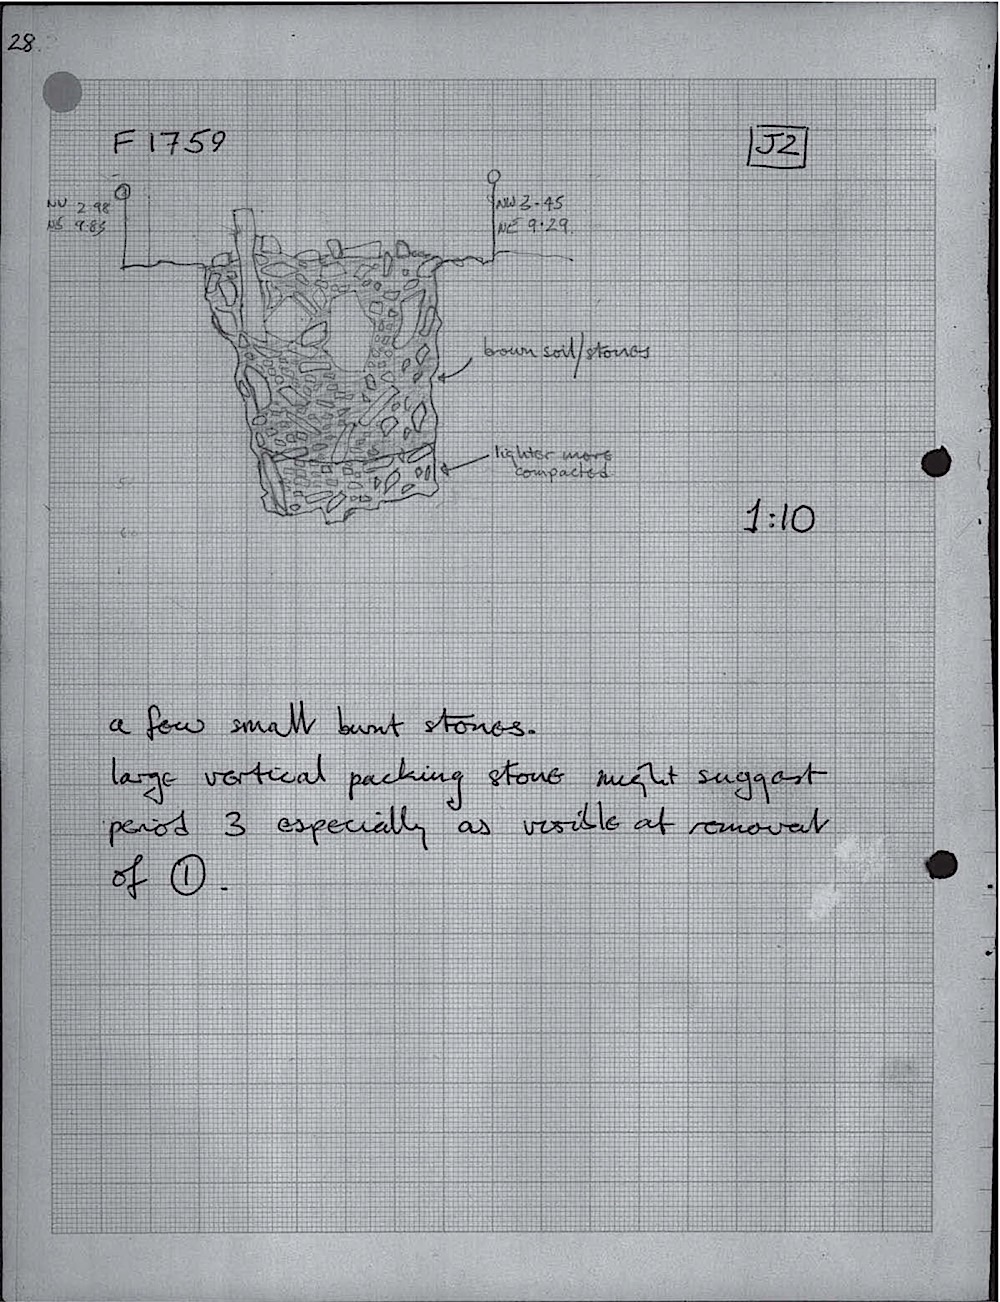 28
F1759
J2
NW 2.98
NW 3.45
NE 9.29
brown soil/stones
lighter more
compacted
50
60
1:10
a few small burnt stones.
large vertical packing stone might suggest
period 3 especially as visible at removal
of ①.